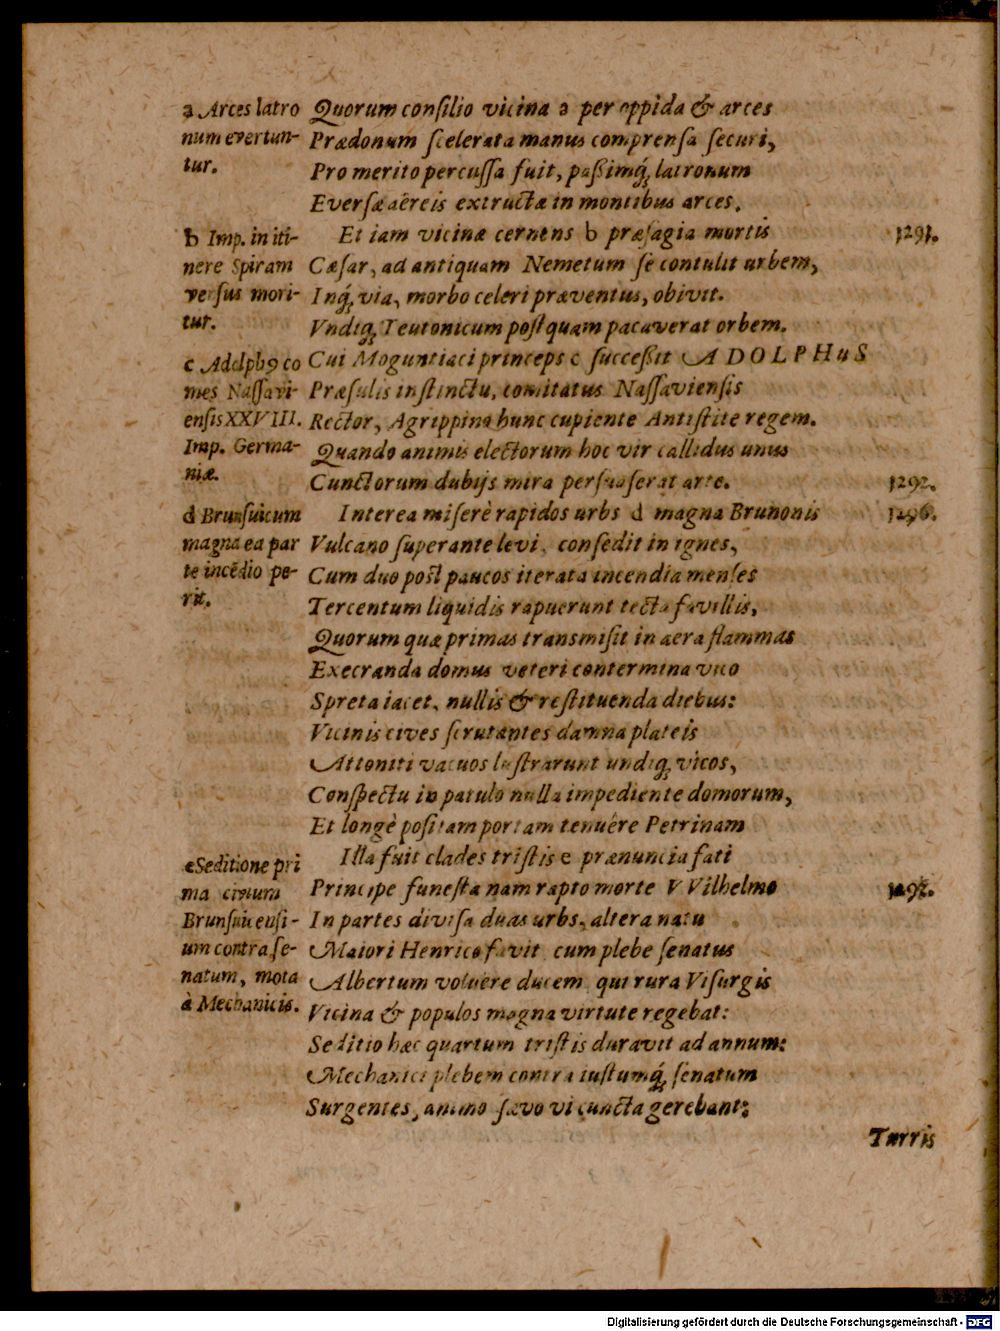 a Arces latro
num evertun-
tur.
Quorum consilio vicina a per oppida & arces
Prædonum scelerata manus comprensa securi,
Pro merito percussa fuit, paßimq́; latronum
Eversæ aëreis extructæ in montibus arces.
b Imp. in iti-
nere Spiram
versus mori-
tur.
Et iam vicinæ cernens b præsagia mortis
1291.
Cæsar, ad antiquam Nemetum se contulit urbem,
Inq́; via, morbo celeri præventus, obivit.
Vndiq; Teutonicum postquam pacaverat orbem.
c Adolphꝰ co
mes Nassavi-
ensis XXVIII.
Imp. Germa-
niæ.
Cui Moguntiaci princeps c succeßit ADOLPHuS
Præsulis instinctu, comitatus Nassaviensis
Rector, Agrippina hunc cupiente Antistite regem.
Quando animis electorum hoc vir callidus unus
Cunctorum dubijs mira persuaserat arte.
1292.
d Brunsuicum
magna ea par
te incēdio pe-
rit.
Interea miserè rapidos urbs d magna Brunonis
1296.
Vulcano superante levi, consedit in ignes,
Cum duo post paucos iterata incendia menses
Tercentum liquidis rapuerunt tecta favillis,
Quorum quæ primas transmisit in aera flammas
Execranda domus veteri contermina vico
Spreta iacet, nullis & restituenda diebus:
Vicinis cives scrutantes damna plateis
Attoniti vacuos lustrarunt undiq; vicos,
Conspectu in patulo nulla impediente domorum,
Et longè positam portam tenuére Petrinam
e Seditione pri
ma civium
Brunsuicensi-
um contra se-
natum, mota
à Mechanicis.
Illa fuit clades tristis e prænuncia fati
Principe funesta nam rapto morte VVilhelmo
1292.
In partes divisa duas urbs, altera natu
Maiori Henrico favit cum plebe senatus
Albertum voluere ducem qui rura Visurgis
Vicina & populos magna virtute regebat:
Seditio hæc quartum tristis duravit ad annum:
Mechanici plebem contra iustumq́; senatum
Surgentes, animo sævo vi cuncta gerebant;
Turris
Digitalisierung gefördert durch die Deutsche Forschungsgemeinschaft - DFG